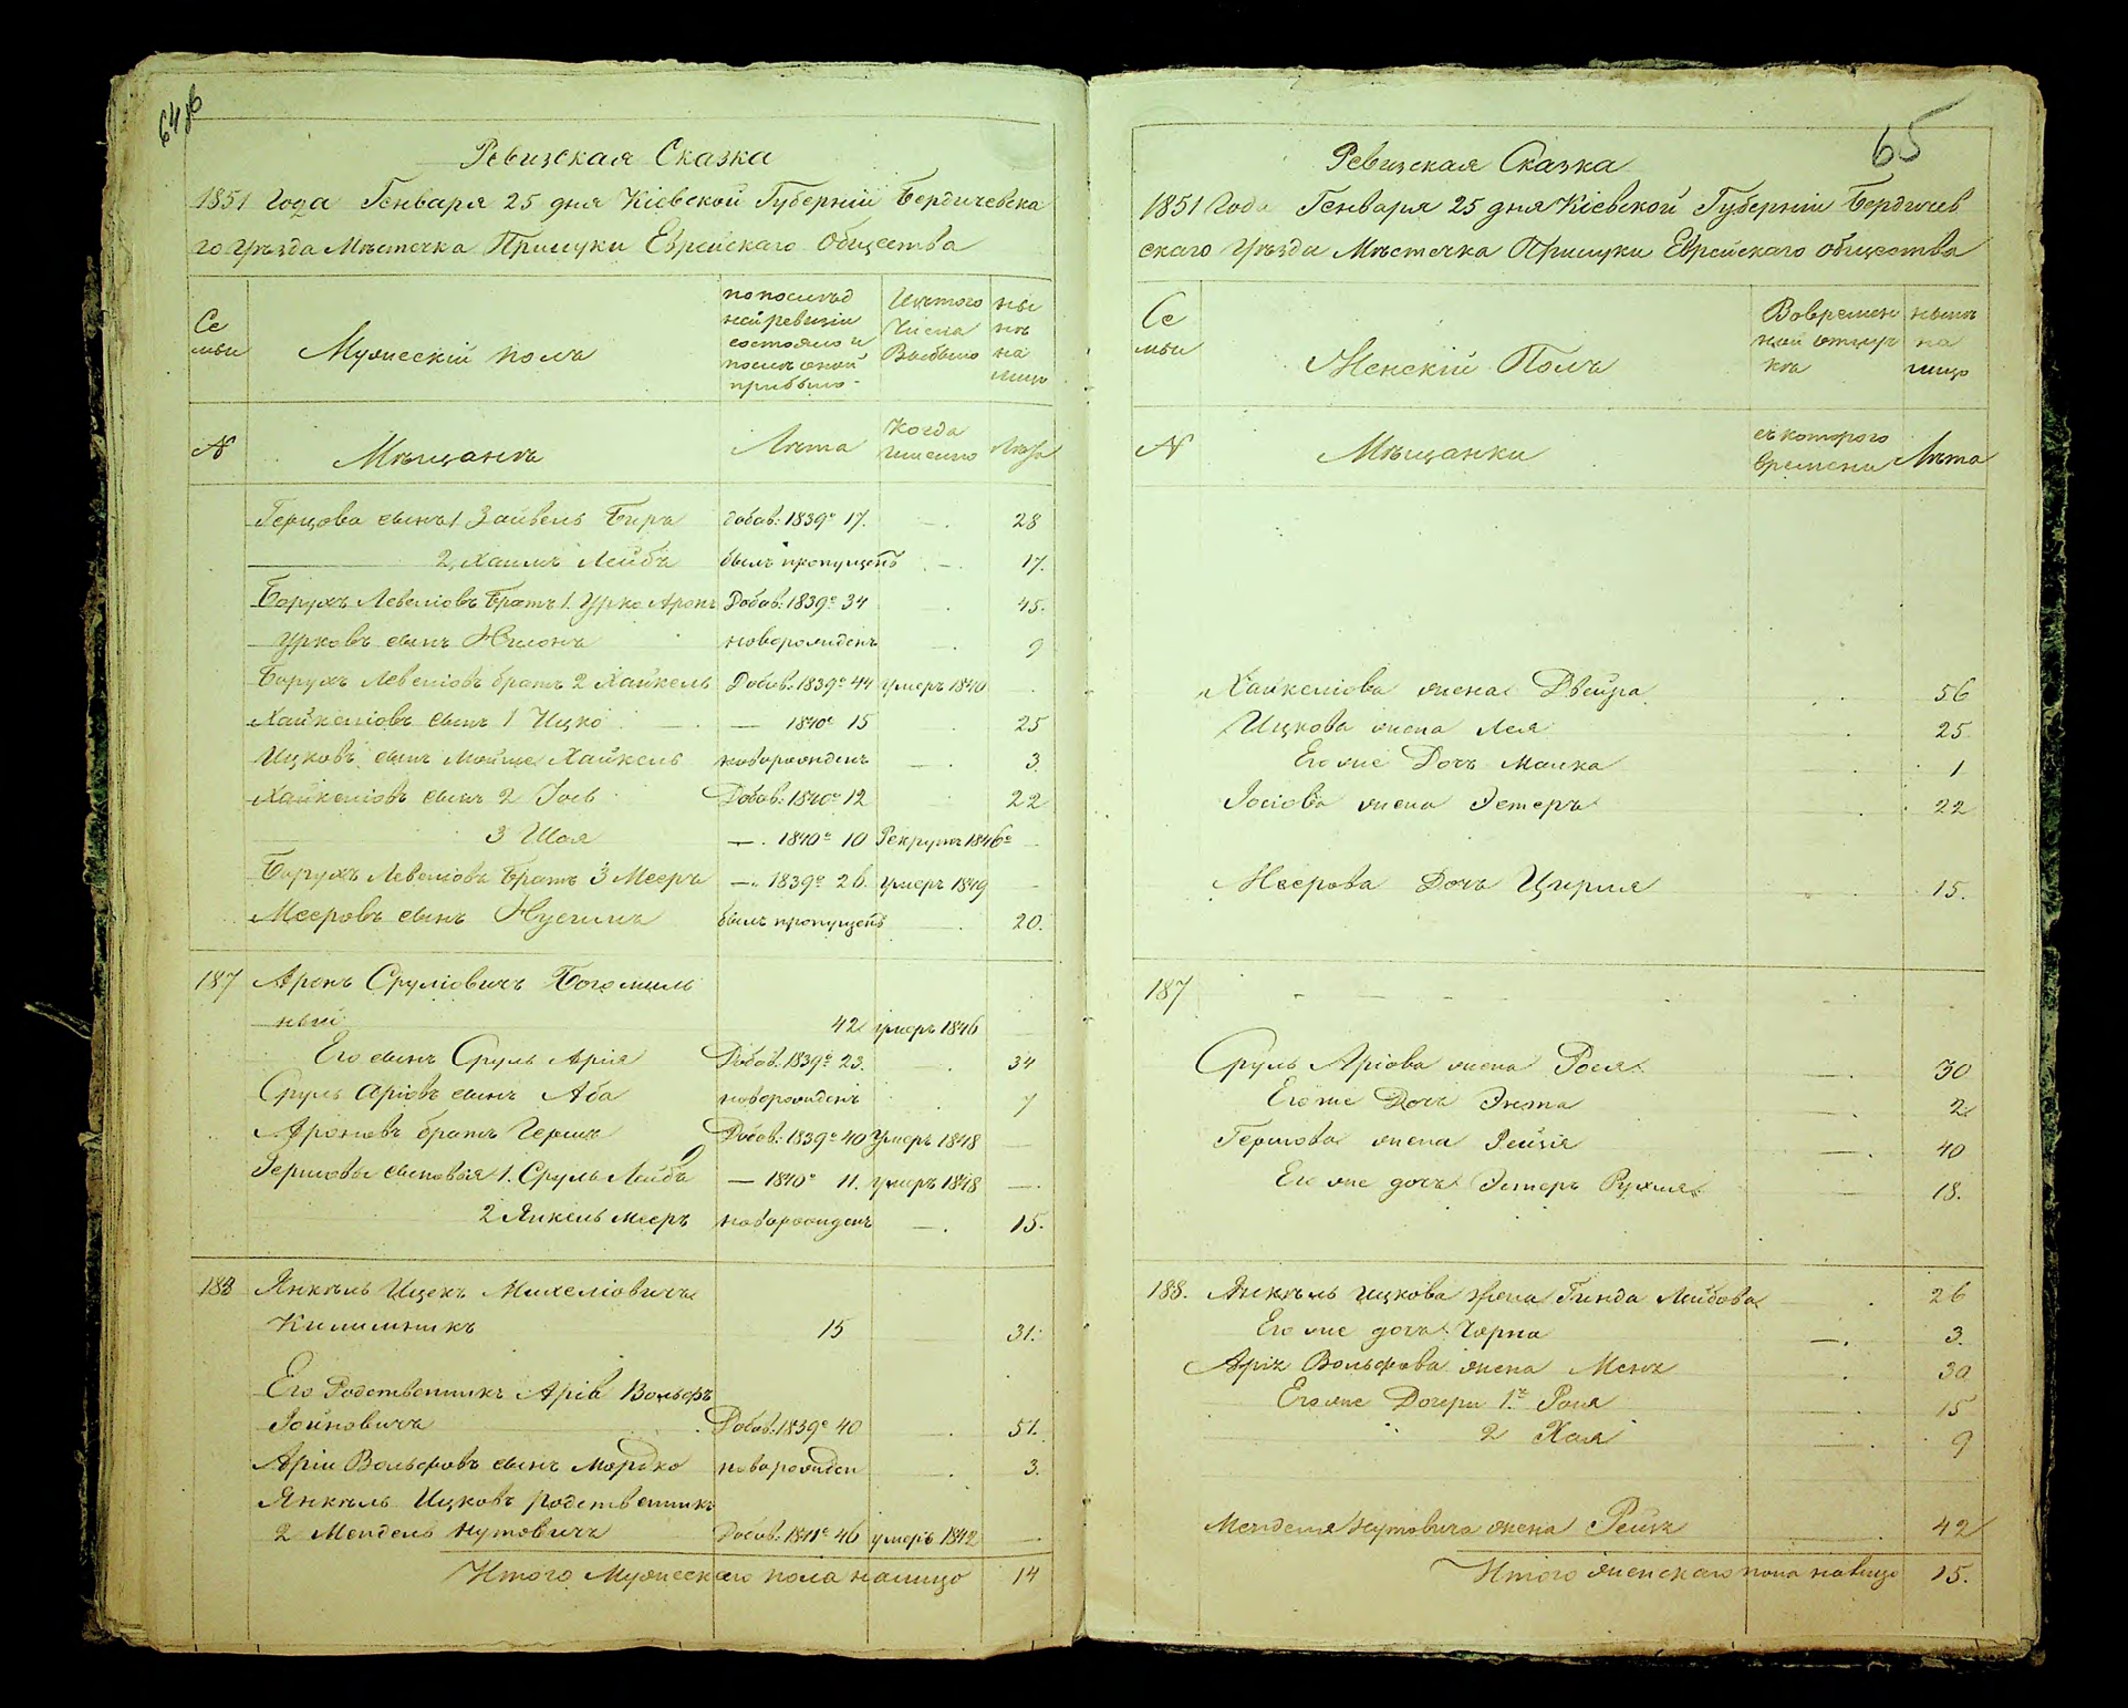 64об
Ревизская Сказка
1851 Года Генваря 25 дня Кіевской Губерніи Бердичевска
го Уѣзда Мѣстечка Прилуки Еврейскаго Общества
Се
мьи
Мужескій полъ
по послѣд
ней ревизіи
состояло и
послѣ оной
прибыло
Изъ того
Числа
Выбыло
ны
нѣ
на
лицо
№
Мѣщанъ
Лѣта
Когда
именно
Лѣта
Герцова сынъ 1 Зайвель Беръ добав: 1839º 17. — 28
2, Хаимъ Лейбъ былъ пропущенъ — 17.
Борухъ Левеліовъ братъ 1. Урко Аронъ Добав: 1839º 34 45.
Урковъ сынъ новорожденъ 9
Борухъ Левеліовъ братъ 2 Хайкель Добав: 1839º 44 умеръ 1840
Хайкеліовъ сынъ 1 Ицко — 1840º 15 25
Ицковъ сынъ Мойше Хайкель новорожденъ — 3.
Хайкеліовъ сынъ 2 Іось Добав: 1840º 12 22
3 Шая — 1840º 10 Рекрутъ 1846º
Борухъ Левеліовъ братъ 3 Мееръ — 1839º 26. умеръ 1849 —
Мееровъ сынъ Нусимъ былъ пропущенъ — 20.
187 Аронъ Сруліовичъ Богомиль
ный 42 умеръ 1846
Его сынъ Сруль Арія Добав. 1839º 23. — 34
Сруль Аріовъ сынъ Аба новорожденъ 7
Ароновъ братъ Гершъ Добав: 1839º 40 Умеръ 1848 —
Гершовы сыновья 1. Сруль Лейбъ — 1840º 11. умеръ 1848 —
2 Янкель Мееръ новорожденъ — 15.
188 Янкѣль Ицекъ Михеліовичъ
Килимникъ 15 31.
Его Родственникъ Арія Вольфъ
Іойновичъ Добав: 1839º 40 51.
Арія Вольфовъ сынъ Мордко новорожден 3.
Янкѣль Ицковъ родственникъ
2 Мендель Нутовичъ Добав: 1841º 46 умеръ 1842 —
Итого Мужескаго пола налицо 14
65
Ревизская Сказка
1851 Года Генваря 25 дня Кіевской Губерніи Бердичев
скаго Уѣзда Мѣстечка Прилуки Еврейскаго общества
Се
мьи
Женскій Полъ
Во времен
ной отлуч
кѣ
нынѣ
на
лицо
№
Мѣщанки
съ котораго
времени
Лѣта
Хайкеліова жена Двейра 56
Ицкова жена Лея 25
Его же Дочь Малка 1
Іосіова жена Эстеръ 22
Меерова Дочь Цирля 15.
187
Сруль Аріова жена Рося 30
Его же Дочь Энта 2
Гершова жена Рейзя 40
Его же дочь Эстеръ Рухля 18.
188. Янкѣль Ицкова жена Гинда Лейбова 26
Его же дочь Чарна 3.
Арія Вольфова жена 30
Его же Дочери 1я Рося 15
2 Хая 9
Менделя Нутовича жена Рейза 42
Итого женскаго пола налицо 15.